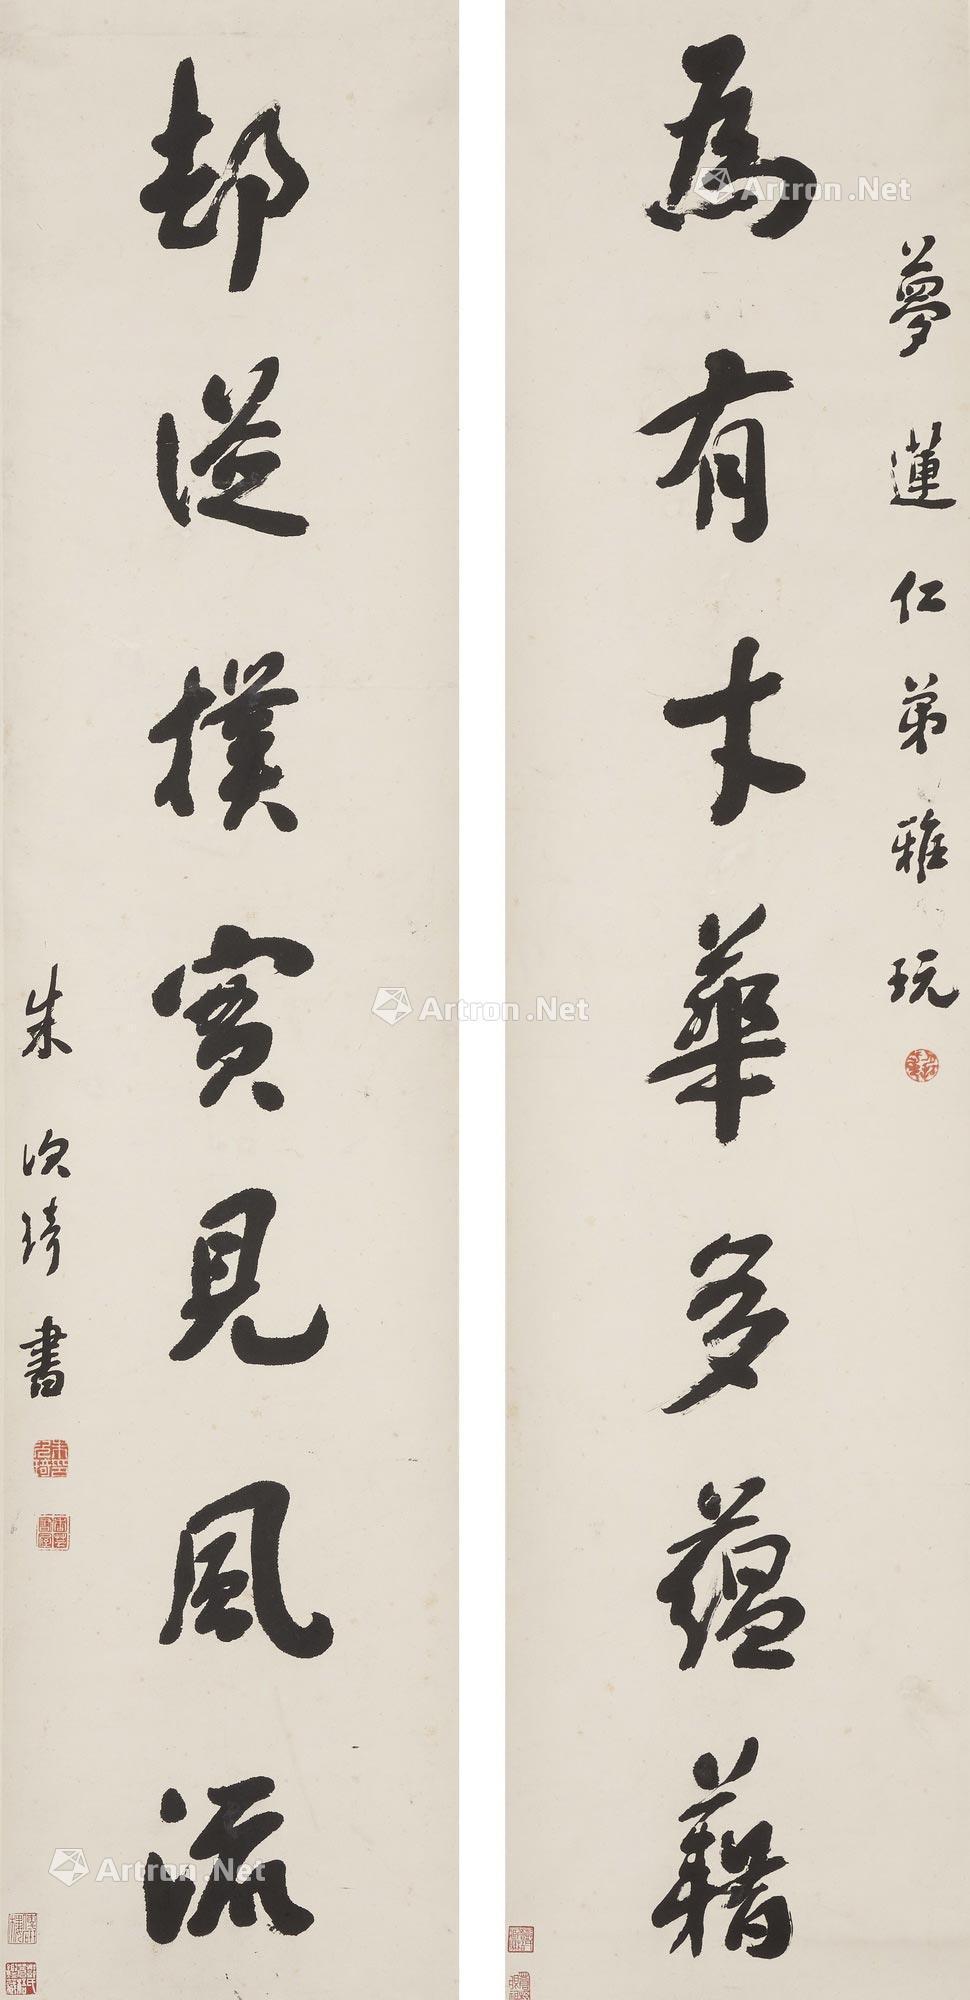 夢蓮仁弟雅玩
為有才華多蘊藉
却從樸實見風流
朱次琦書
Artron.Net
Artron.Net
Artron.Net
Artron.Net